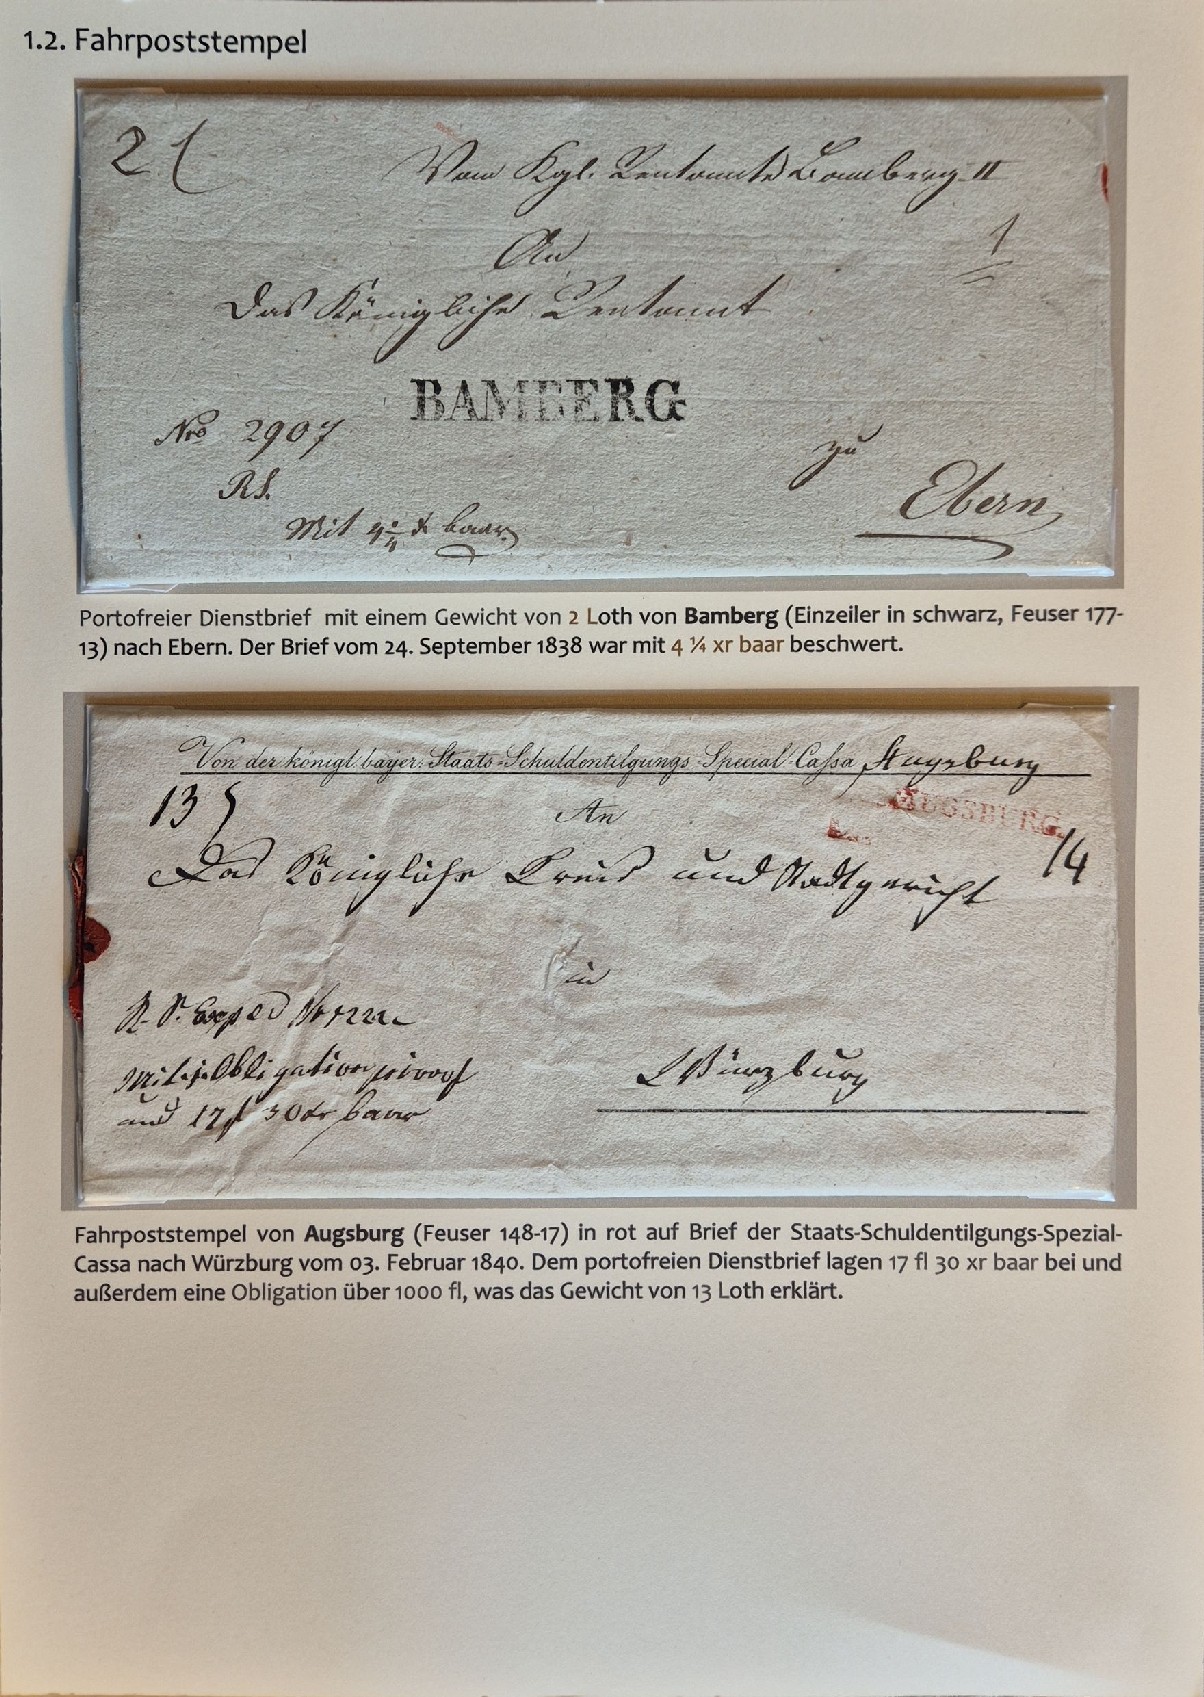 1.2. Fahrpoststempel
2 L
Vom Kgl. Rentamte Bamberg II
An
1
Das Königliche Rentamt
BAMBERG
Nro 2907
zu
R.S.
Ebern
Mit 4 1/4 x baar.
Portofreier Dienstbrief mit einem Gewicht von 2 Loth von Bamberg (Einzeiler in schwarz, Feuser 177-
13) nach Ebern. Der Brief vom 24. September 1838 war mit 4 ¼ xr baar beschwert.
Von der königl. bayer. Staats-Schuldentilgungs-Special-Cassa Augsburg
13 L
An
AUGSBURG.
14
Das Königliche Kreis und Stadtgericht
in
R. S. Exped
Würzburg
Mit Obligation
und 17 f 30 xr baar
Fahrpoststempel von Augsburg (Feuser 148-17) in rot auf Brief der Staats-Schuldentilgungs-Spezial-
Cassa nach Würzburg vom 03. Februar 1840. Dem portofreien Dienstbrief lagen 17 fl 30 xr baar bei und
außerdem eine Obligation über 1000 fl, was das Gewicht von 13 Loth erklärt.